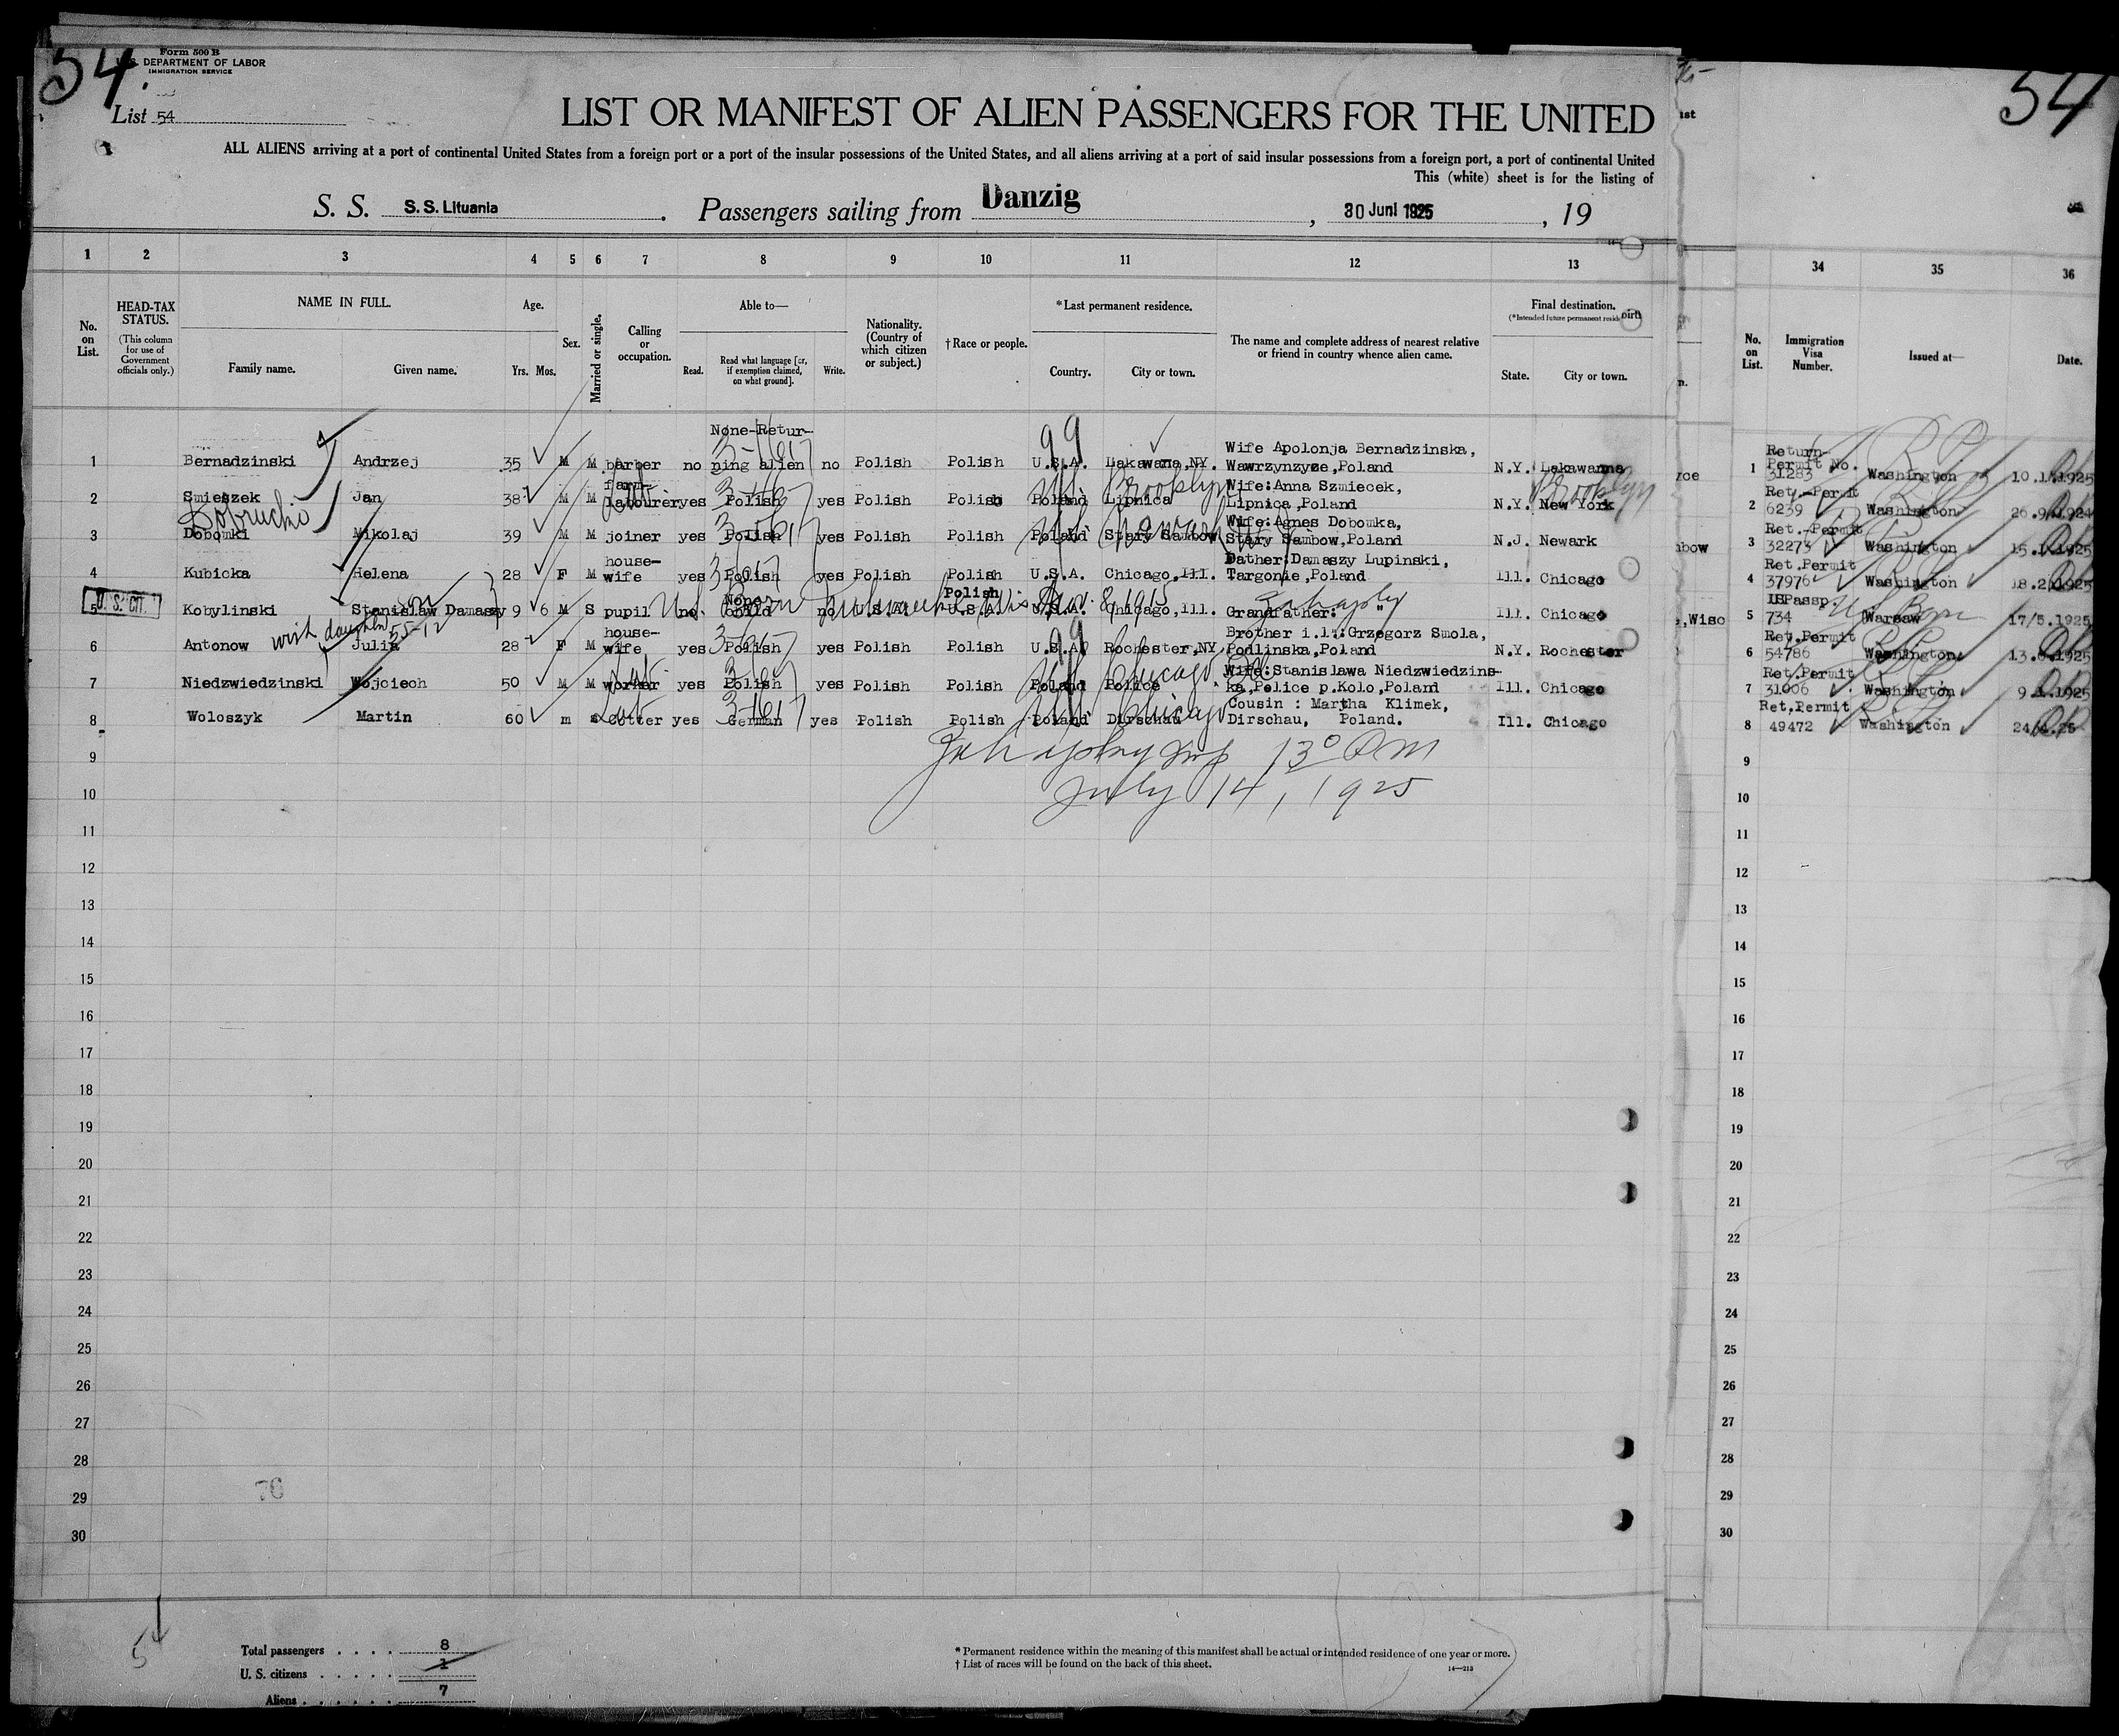 54.
Form 500 B
U. S. DEPARTMENT OF LABOR
IMMIGRATION SERVICE
List 54
LIST OR MANIFEST OF ALIEN PASSENGERS FOR THE UNITED
ALL ALIENS arriving at a port of continental United States from a foreign port or a port of the insular possessions of the United States, and all aliens arriving at a port of said insular possessions from a foreign port, a port of continental United
This (white) sheet is for the listing of
S. S. S.S. Lituania . Passengers sailing from Danzig , 30 Juni 1925 , 19
1 2 3 4 5 6 7 8 9 10 11 12 13
No. on List.
HEAD-TAX STATUS.
(This column for use of Government officials only.)
NAME IN FULL.
Family name. Given name.
Age.
Yrs. Mos.
Sex.
Married or single.
Calling or occupation.
Able to—
Read. Read what language [or, if exemption claimed, on what ground]. Write.
Nationality. (Country of which citizen or subject.)
† Race or people.
* Last permanent residence.
Country. City or town.
The name and complete address of nearest relative or friend in country whence alien came.
Final destination.
(*Intended future permanent resid
State. City or town.
None-Retur-
Wife Apolonja Bernadzinska,
1 Bernadzinski Andrzej 35 M M barber no ning alien no Polish Polish U.S.A. Lakawana,NY. Wawrzynzyze,Poland N.Y. Lakawanna
farm- Brooklyn Wife:Anna Szmiecek, Brooklyn
2 Smieszek Jan 38 M M labourer yes Polish yes Polish Polish Poland Lipnica Lipnica,Poland N.Y. New York
Newark Wife:Agnes Dobomka,
3 Dobomki Mikolaj 39 M M joiner yes Polish yes Polish Polish Poland Stary Sambow Stary Sambow,Poland N.J. Newark
house- Dather:Damaszy Lupinski,
4 Kubicka Helena 28 F M wife yes Polish yes Polish Polish U.S.A. Chicago,Ill. Targonie,Poland Ill. Chicago
U. S. CIT. son None Polish
5 Kobylinski Stanislaw Damaszy 9 6 M S pupil no child no U.S.A. U.S.A. U.S.A. Chicago,Ill. Grandfather: " Ill. Chicago
with daughter 55-12 house- Brother i.l.:Grzegorz Smola,
6 Antonow Julia 28 F M wife yes Polish yes Polish Polish U.S.A. Rochester,NY. Podlinska,Poland N.Y. Rochester
Lab Chicago Wife:Stanislawa Niedzwiedzins-
7 Niedzwiedzinski Wojciech 50 M M worker yes Polish yes Polish Polish Poland Police ka,Police p.Kolo,Poland Ill. Chicago
Lab Chicago Cousin : Martha Klimek,
8 Woloszyk Martin 60 m cotter yes German yes Polish Polish Poland Dirschau Dirschau, Poland. Ill. Chicago
9
July 14, 1925
10
11
12
13
14
15
16
17
18
19
20
21
22
23
24
25
26
27
28
29
30
Total passengers . . . . 8
U. S. citizens . . . . . 1
Aliens . . . . . . 7
* Permanent residence within the meaning of this manifest shall be actual or intended residence of one year or more.
† List of races will be found on the back of this sheet.
14—213
54
34 35 36
No. on List.
Immigration Visa Number.
Issued at—
Date.
Return-
Permit No.
1 31283 Washington 10.1.1925
Ret.-Permit
2 6239 Washington 26.9.1924
Ret.-Permit
3 32273 Washington 15.1.1925
Ret.Permit
4 37976 Washington 18.2.1925
USPassp. US Born
5 734 Warsaw 17/5.1925
Ret.Permit
6 54786 Washington
Ret.Permit
7 31006 Washington 9.1.1925
Ret,Permit
8 49472 Washington
9
10
11
12
13
14
15
16
17
18
19
20
21
22
23
24
25
26
27
28
29
30